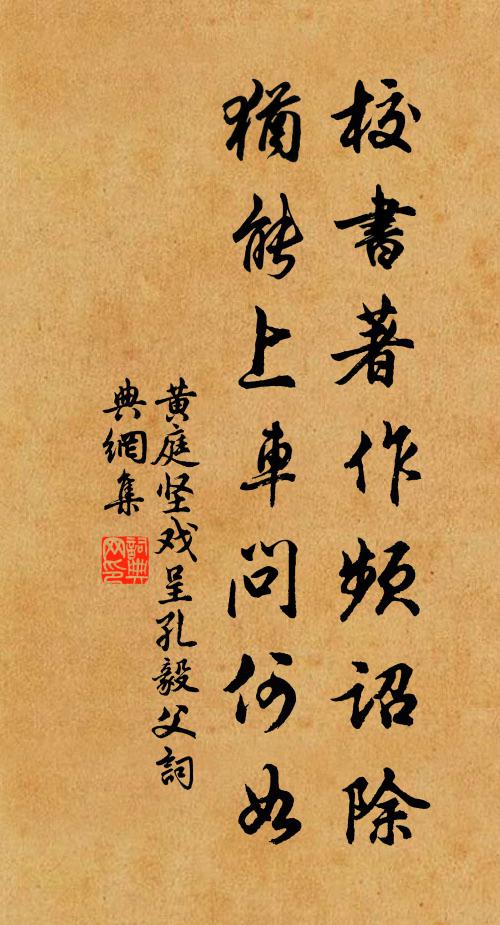 校書著作頻詔除
猶能上車問何如
黄庭坚戏呈孔毅父詞
典網集
詞典網印